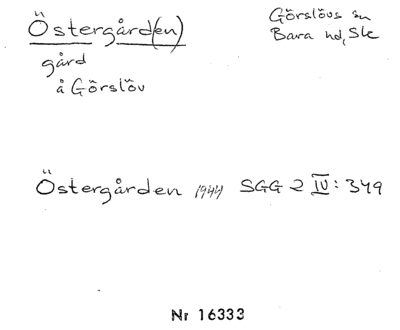 Östergård(en)
Görslövs sn
Bara hd, Sk
gård
å Görslöv
Östergården 1944 SGG 2 IV: 349
Nr 16333